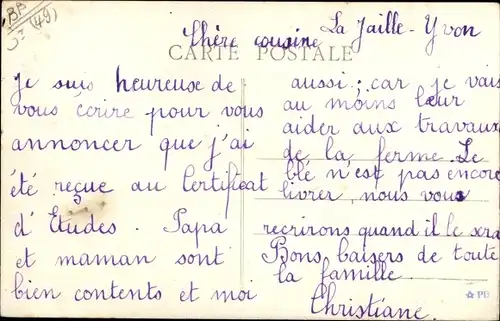 (49)
La Jaille-Yvon
Chère cousine
CARTE POSTALE
Je suis heureuse de
vous écrire pour vous
annoncer que j'ai
été reçue au Certificat
d'Études. Papa
et maman sont
bien contents et moi
aussi; car je vais
au moins leur
aider aux travaux
de la ferme. Le
blé n'est pas encore
livrer, nous vous
recrirons quand il le sera
Bons baisers de toute
la famille.
Christiane.